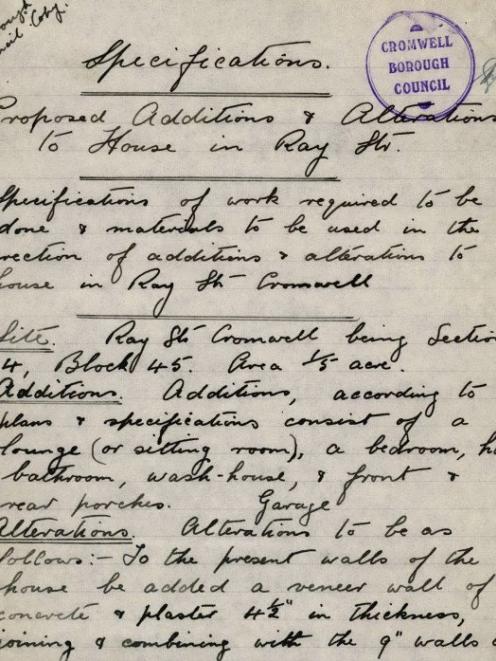 ough
cil Copy.
CROMWELL
BOROUGH
COUNCIL
Specifications.
Proposed Additions & Alterations
to House in Ray Str.
Specifications of work required to be
done & materials to be used in the
rection of additions & alterations to
house in Ray Str Cromwell
Site. Ray Str Cromwell being Section
4, Block 45. Area 1/5 acre.
Additions. Additions, according to
plans & specifications consist of a
lounge (or sitting room), a bedroom, ha
bathroom, wash-house, & front &
rear porches. Garage
Alterations. Alterations to be as
follows:- To the present walls of the
house be added a veneer wall of
concrete & plaster 4½" in thickness,
joining & combining with the 9" walls o